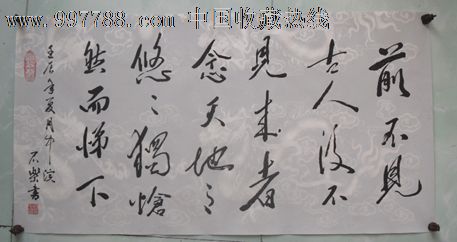 www.997788.com 中国收藏热线
前不見
古人後不
見来者
念天地之
悠々獨愴
然而悌下
壬辰年夏月